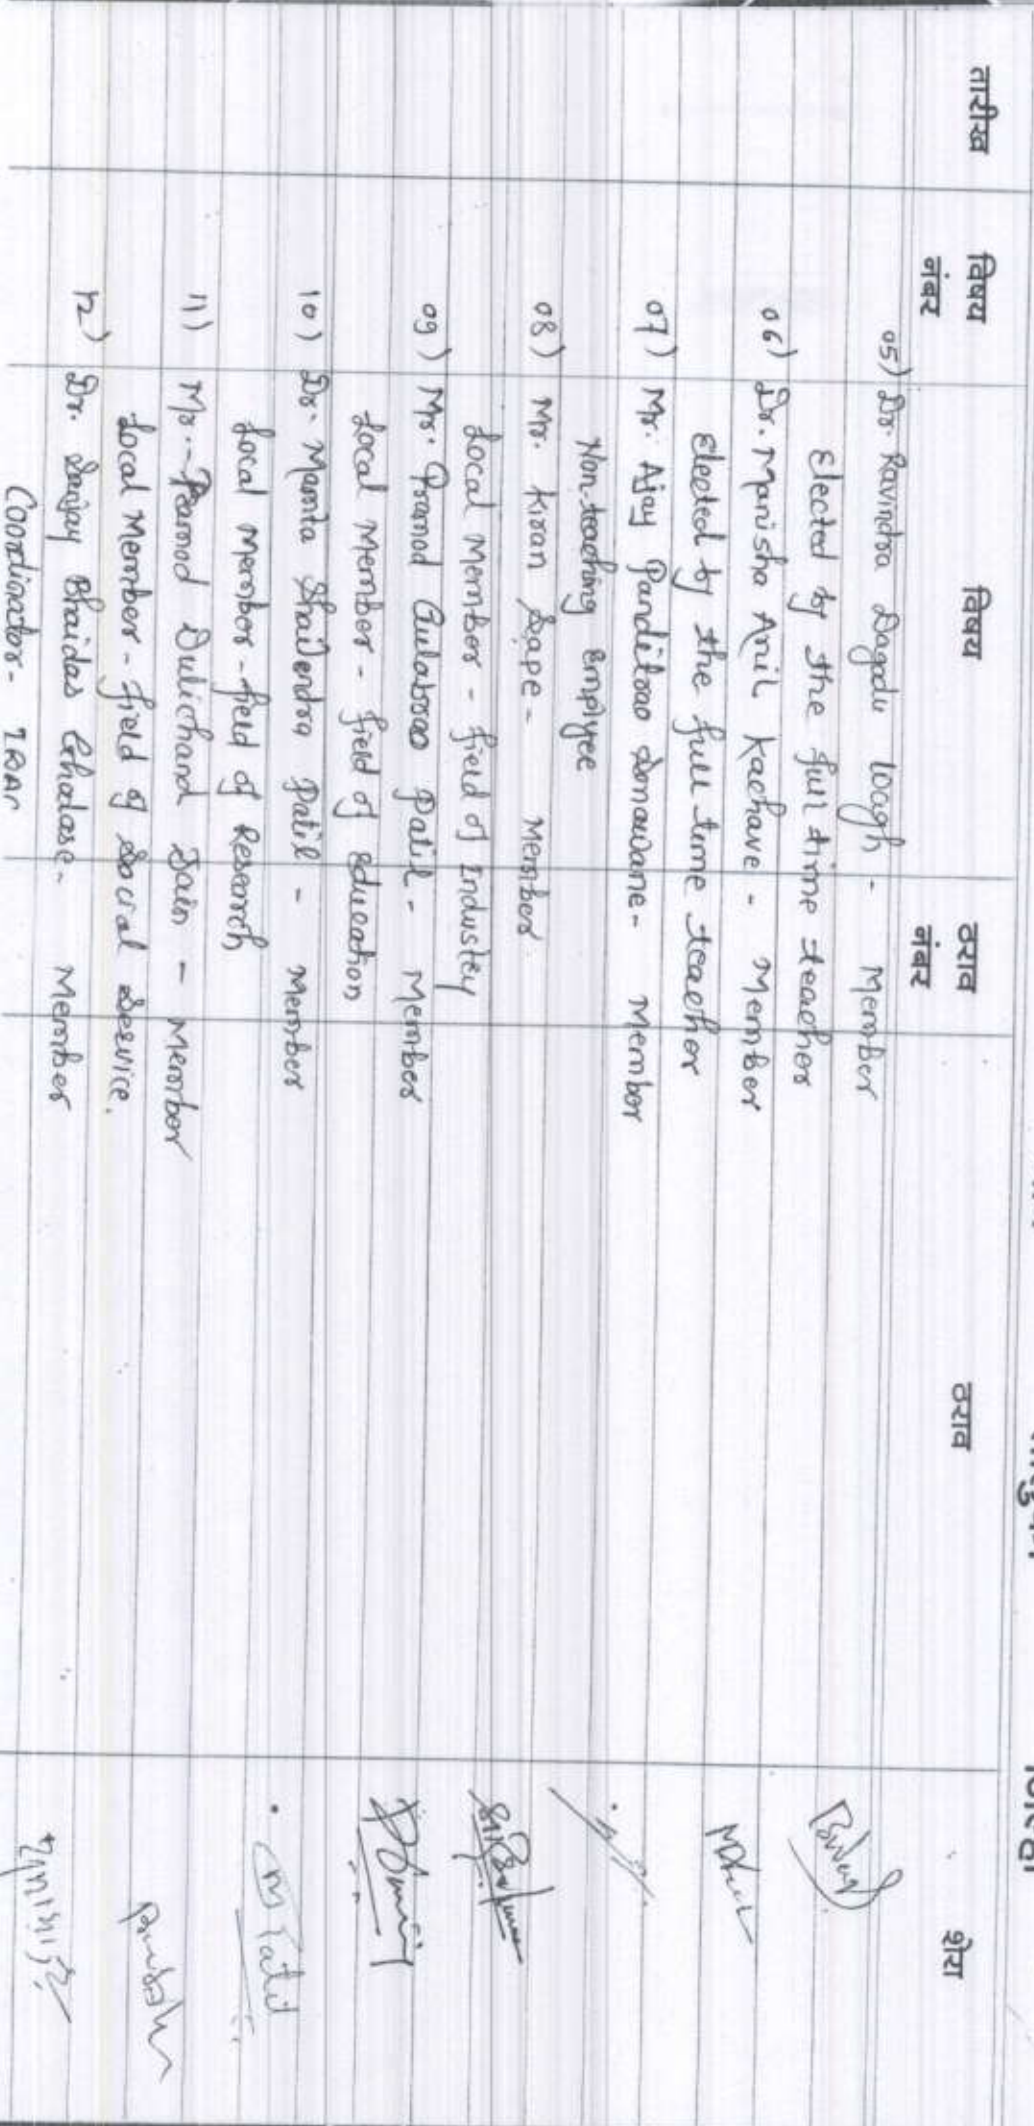 तारीख विषय नंबर विषय ठराव नंबर ठराव शेरा
05) Dr. Ravindra Dagadu Wagh - Member
Elected by the full time teacher
06) Dr. Manisha Anil Kachave - Member
Elected by the full time teacher
07) Mr. Ajay Panditrao Sonawane - Member
Non-teaching Emplyee
08) Mr. Kiran Sape - Member
Local Member - field of Industry
09) Mr. Pramod Gulabrao Patil - Member
Local Member - field of Education
10) Dr. Mamta Shailendra Patil - Member
Local Member - field of Research
11) Mr. Pramod Dulichand Jain - Member
Local Member - field of Social Service.
12) Dr. Sanjay Bhaidas Ghodase - Member
Coordinator - IQAC